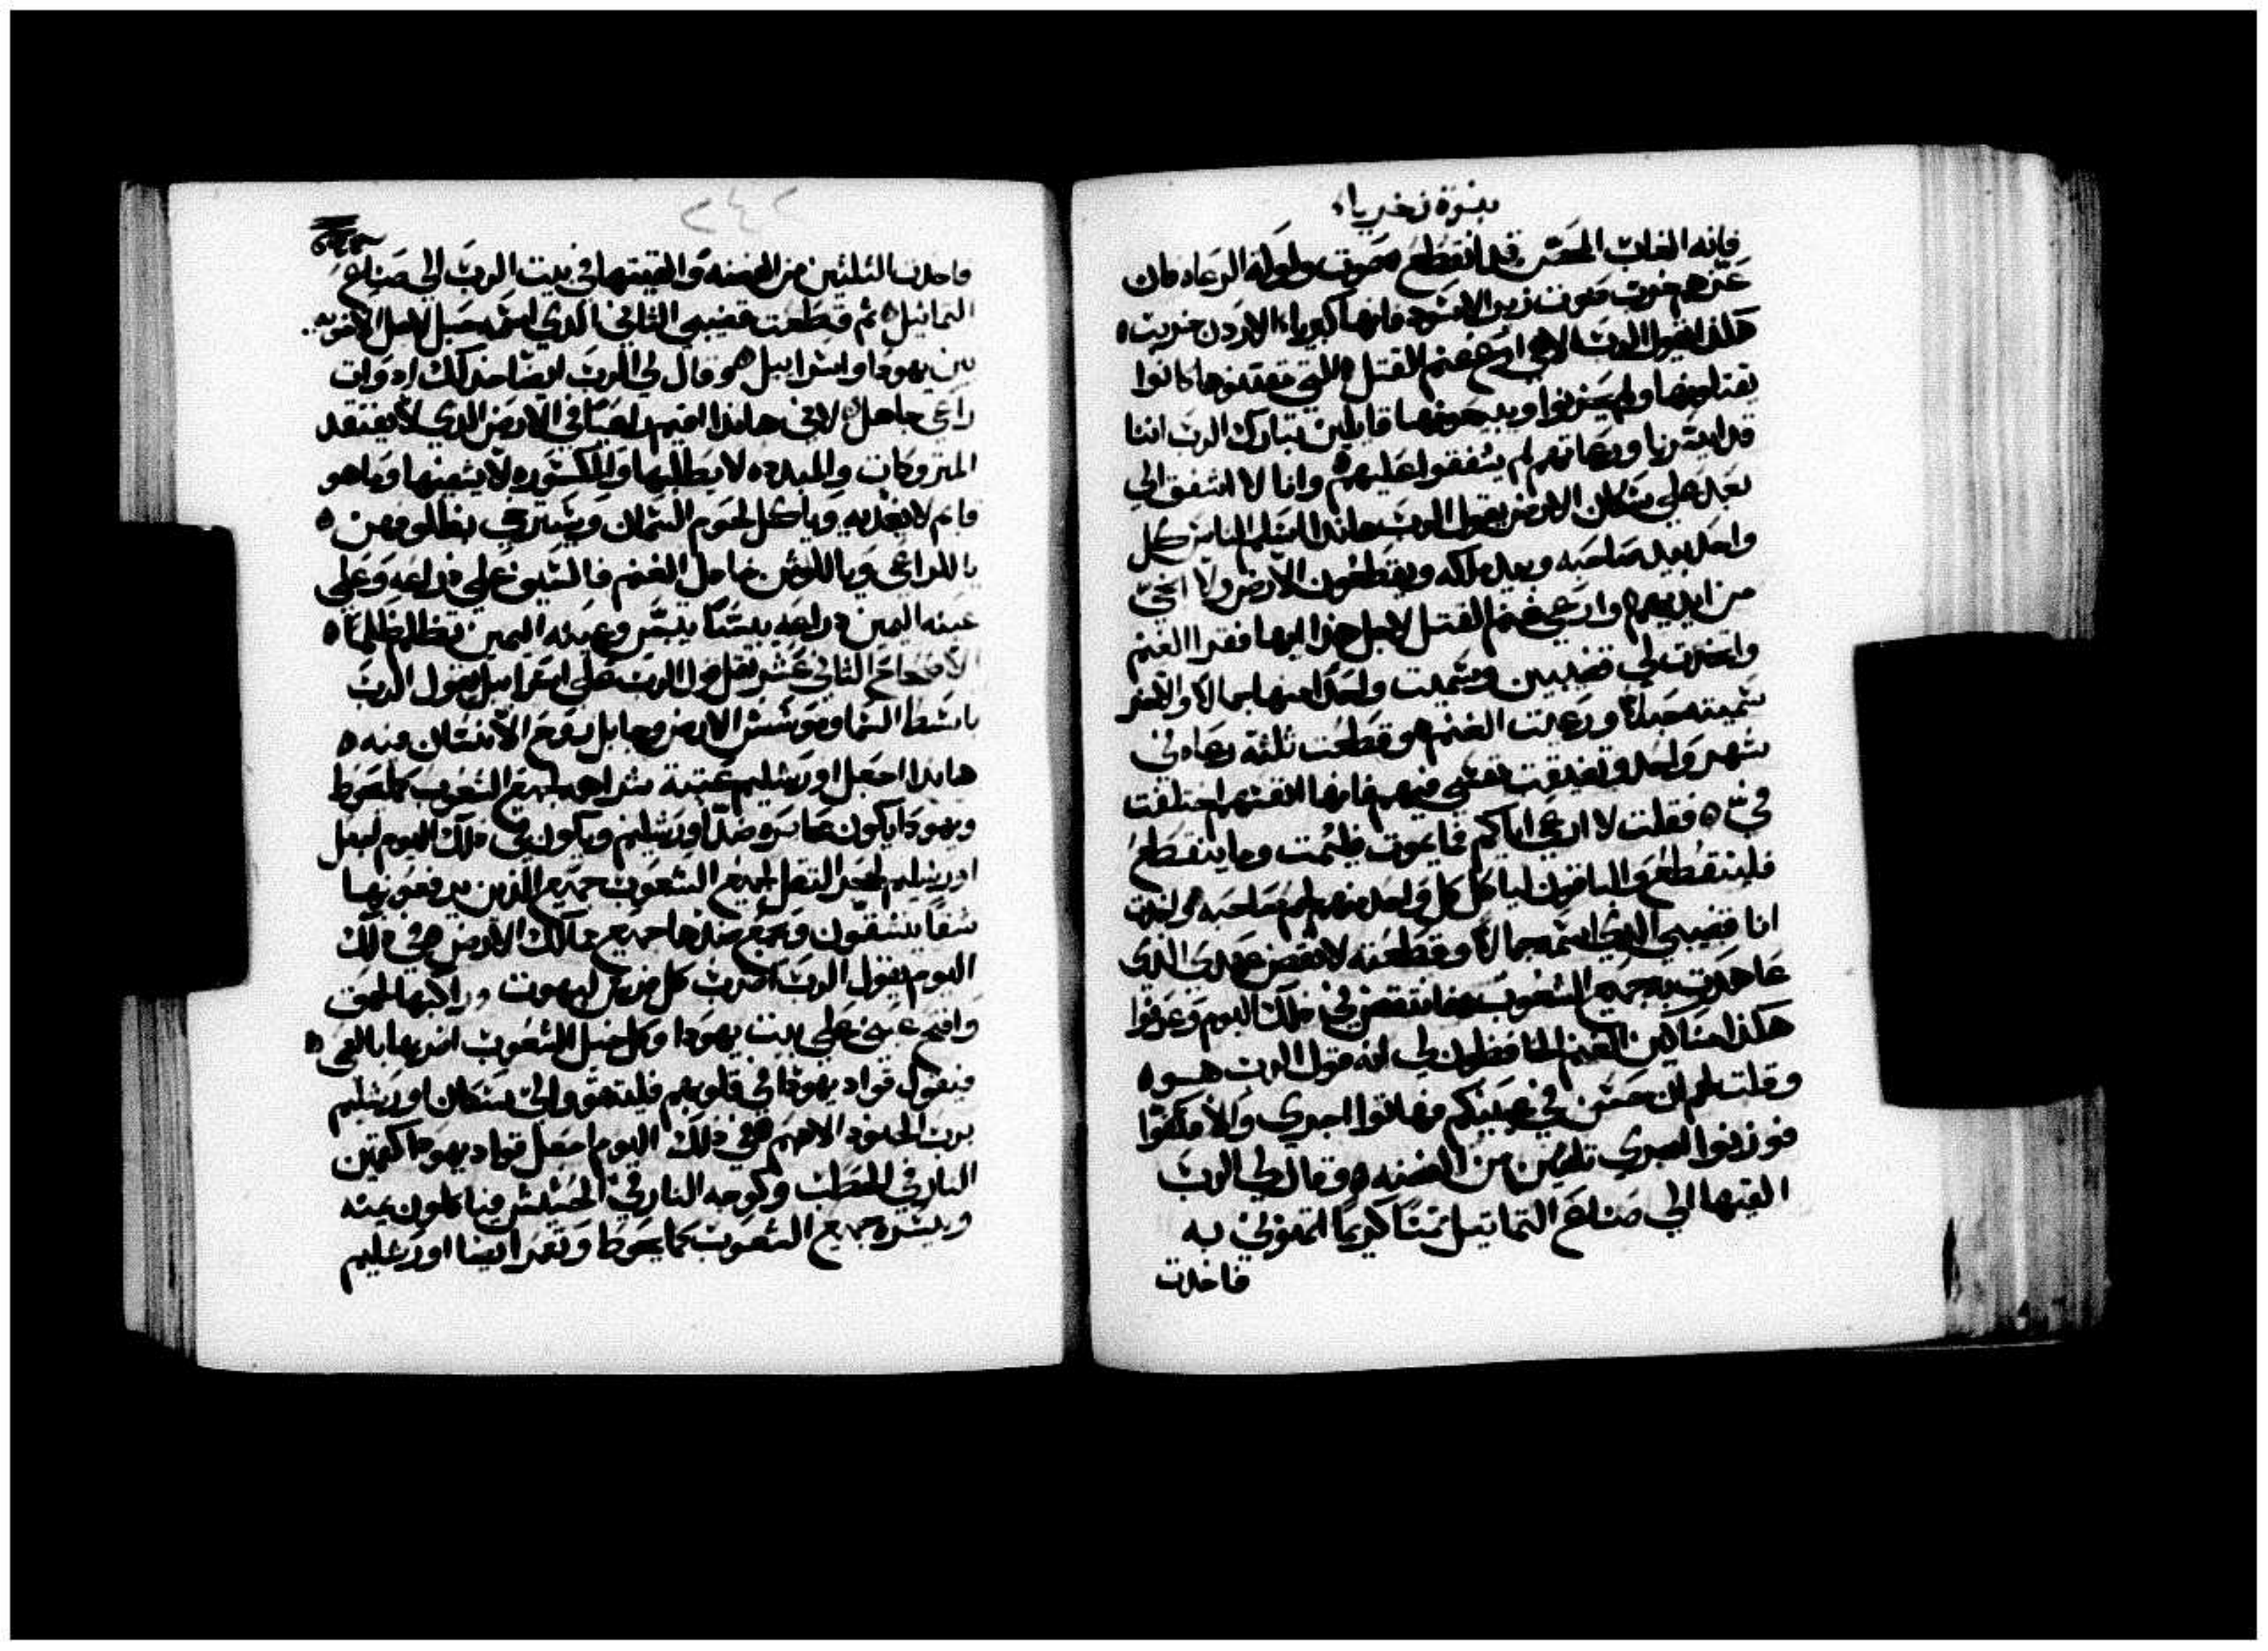 نبوة زخرياء
فانه الغاب المحصن قد انقطع صوت ولولة الرعاه فان
عزهم خرب صوت زير الاسود فانها كبرياء الاردن خربت ه
هكذا يقول الرب الاهي ارع غنم القتل اللتي مقتنوها كانوا
يقتلونها ولم يحزنوا ويبيعونها قايلين تبارك الرب اننا
قد ايسرنا ورعاتهم لم يشفقوا عليهم ه وانا لا اشفق الي
بعد علي سكان الارض يقول الرب هاندا اسلم الناس كل
واحد بيد صاحبه وبيد ملكه ويقطعون الارض ولا انجي
من ايديهم ه وارعي غنم القتل لاجل هذا ايها فقرا الغنم
واتخذت لي قضيبين وسميت واحدا منهما جمالا والاخر
سميته حبلا ورعيت الغنم ه وقطعت ثلثة رعاه في
شهر واحد وتضيقت نفسي فيهم فانها انفسهم اختلفت
فيّ ه فقلت لا ارعي اياكم فما يموت فليمت وما ينقطع
فلينقطع والباقون لياكل كل واحد منهم لحم صاحبه واخدت
انا قضيبي الذي اسمه جمالا وقطعته لانقض عهدي الذي
عاهدت به جميع الشعوب فانتقض في ذلك اليوم وعرفوا
هكذا مساكين الغنم الحافظون لي انه قول الرب هو ه
وقلت لهم ان حسن في عينيكم فهاتوا اجري والا فكفوا
فوزنوا اجري ثلثين من الفضه ه وقال لي الرب
القيها الي صناع التماثيل ثمنا كريما اثمنوني به
فاخدت
٢٤٢
فاخدت الثلثين من الفضه والقيتها في بيت الرب الي صناع
التماثيل ه ثم قطعت قضيبي الثاني الذي اسمه حبل لاحل الاخويه
بين يهودا واسراييل ه وقال لي الرب ايضا خد لك ادوات
راعي جاهل ه لاني هاندا اقيم راعيا في الارض الذي لا يفتقد
المتروكات والمبدده لا يطلبها والمكسوره لا يشفيها وما هو
قايم لا يغذيه وياكل لحوم السمان ويشتري بظالوفهن ه
يا للراعي ويا للوثن خاذل الغنم فالسيف علي ذراعه وعلي
عينه اليمين ذراعه يبسا ييبس وعينه اليمين تظلم ظلما ه
الاصحاح الثاني عشر ثقل قول الرب علي اسراييل يقول الرب
باسط السما وموسس الارض وجابل روح الانسان منه ه
هاندا اجعل اورشليم عتبة سكر لجميع الشعوب كما يحوط
ويهودا يكون محاصره ضد اورشليم ويكون في ذلك اليوم اجعل
اورشليم لحجر الثقل لجميع الشعوب جميع الذين يرفعونها
شقا ينشقون وتجمع ضدها جميع ممالك الارض ه في ذلك
اليوم يقول الرب اضرب كل فرس لبهوت وراكبها لحمق
وافتح عيني علي بيت يهودا وكل خيل الشعوب اضربها بالعمي ه
فيقول قواد يهودا في قلوبهم فليتقوو الي سكان اورشليم
برب الجنود الاههم ه في ذلك اليوم اجعل قواد يهودا كقمين
النار في الحطب وكوجه النار في الحشيش فياكلون يمنه
ويسره جميع الشعوب كما يحوط وتعمر ايضا اورشليم